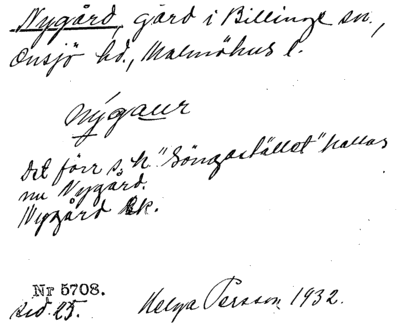 Nygård, gård i Billinge sn.,
Onsjö hd., Malmöhus l.
nýgaur
Det förr s. k. "Söngastället" kallas
nu Nygård.
Nygård Ek.
Nr 5708.
sid. 25. Helga Persson 1932.